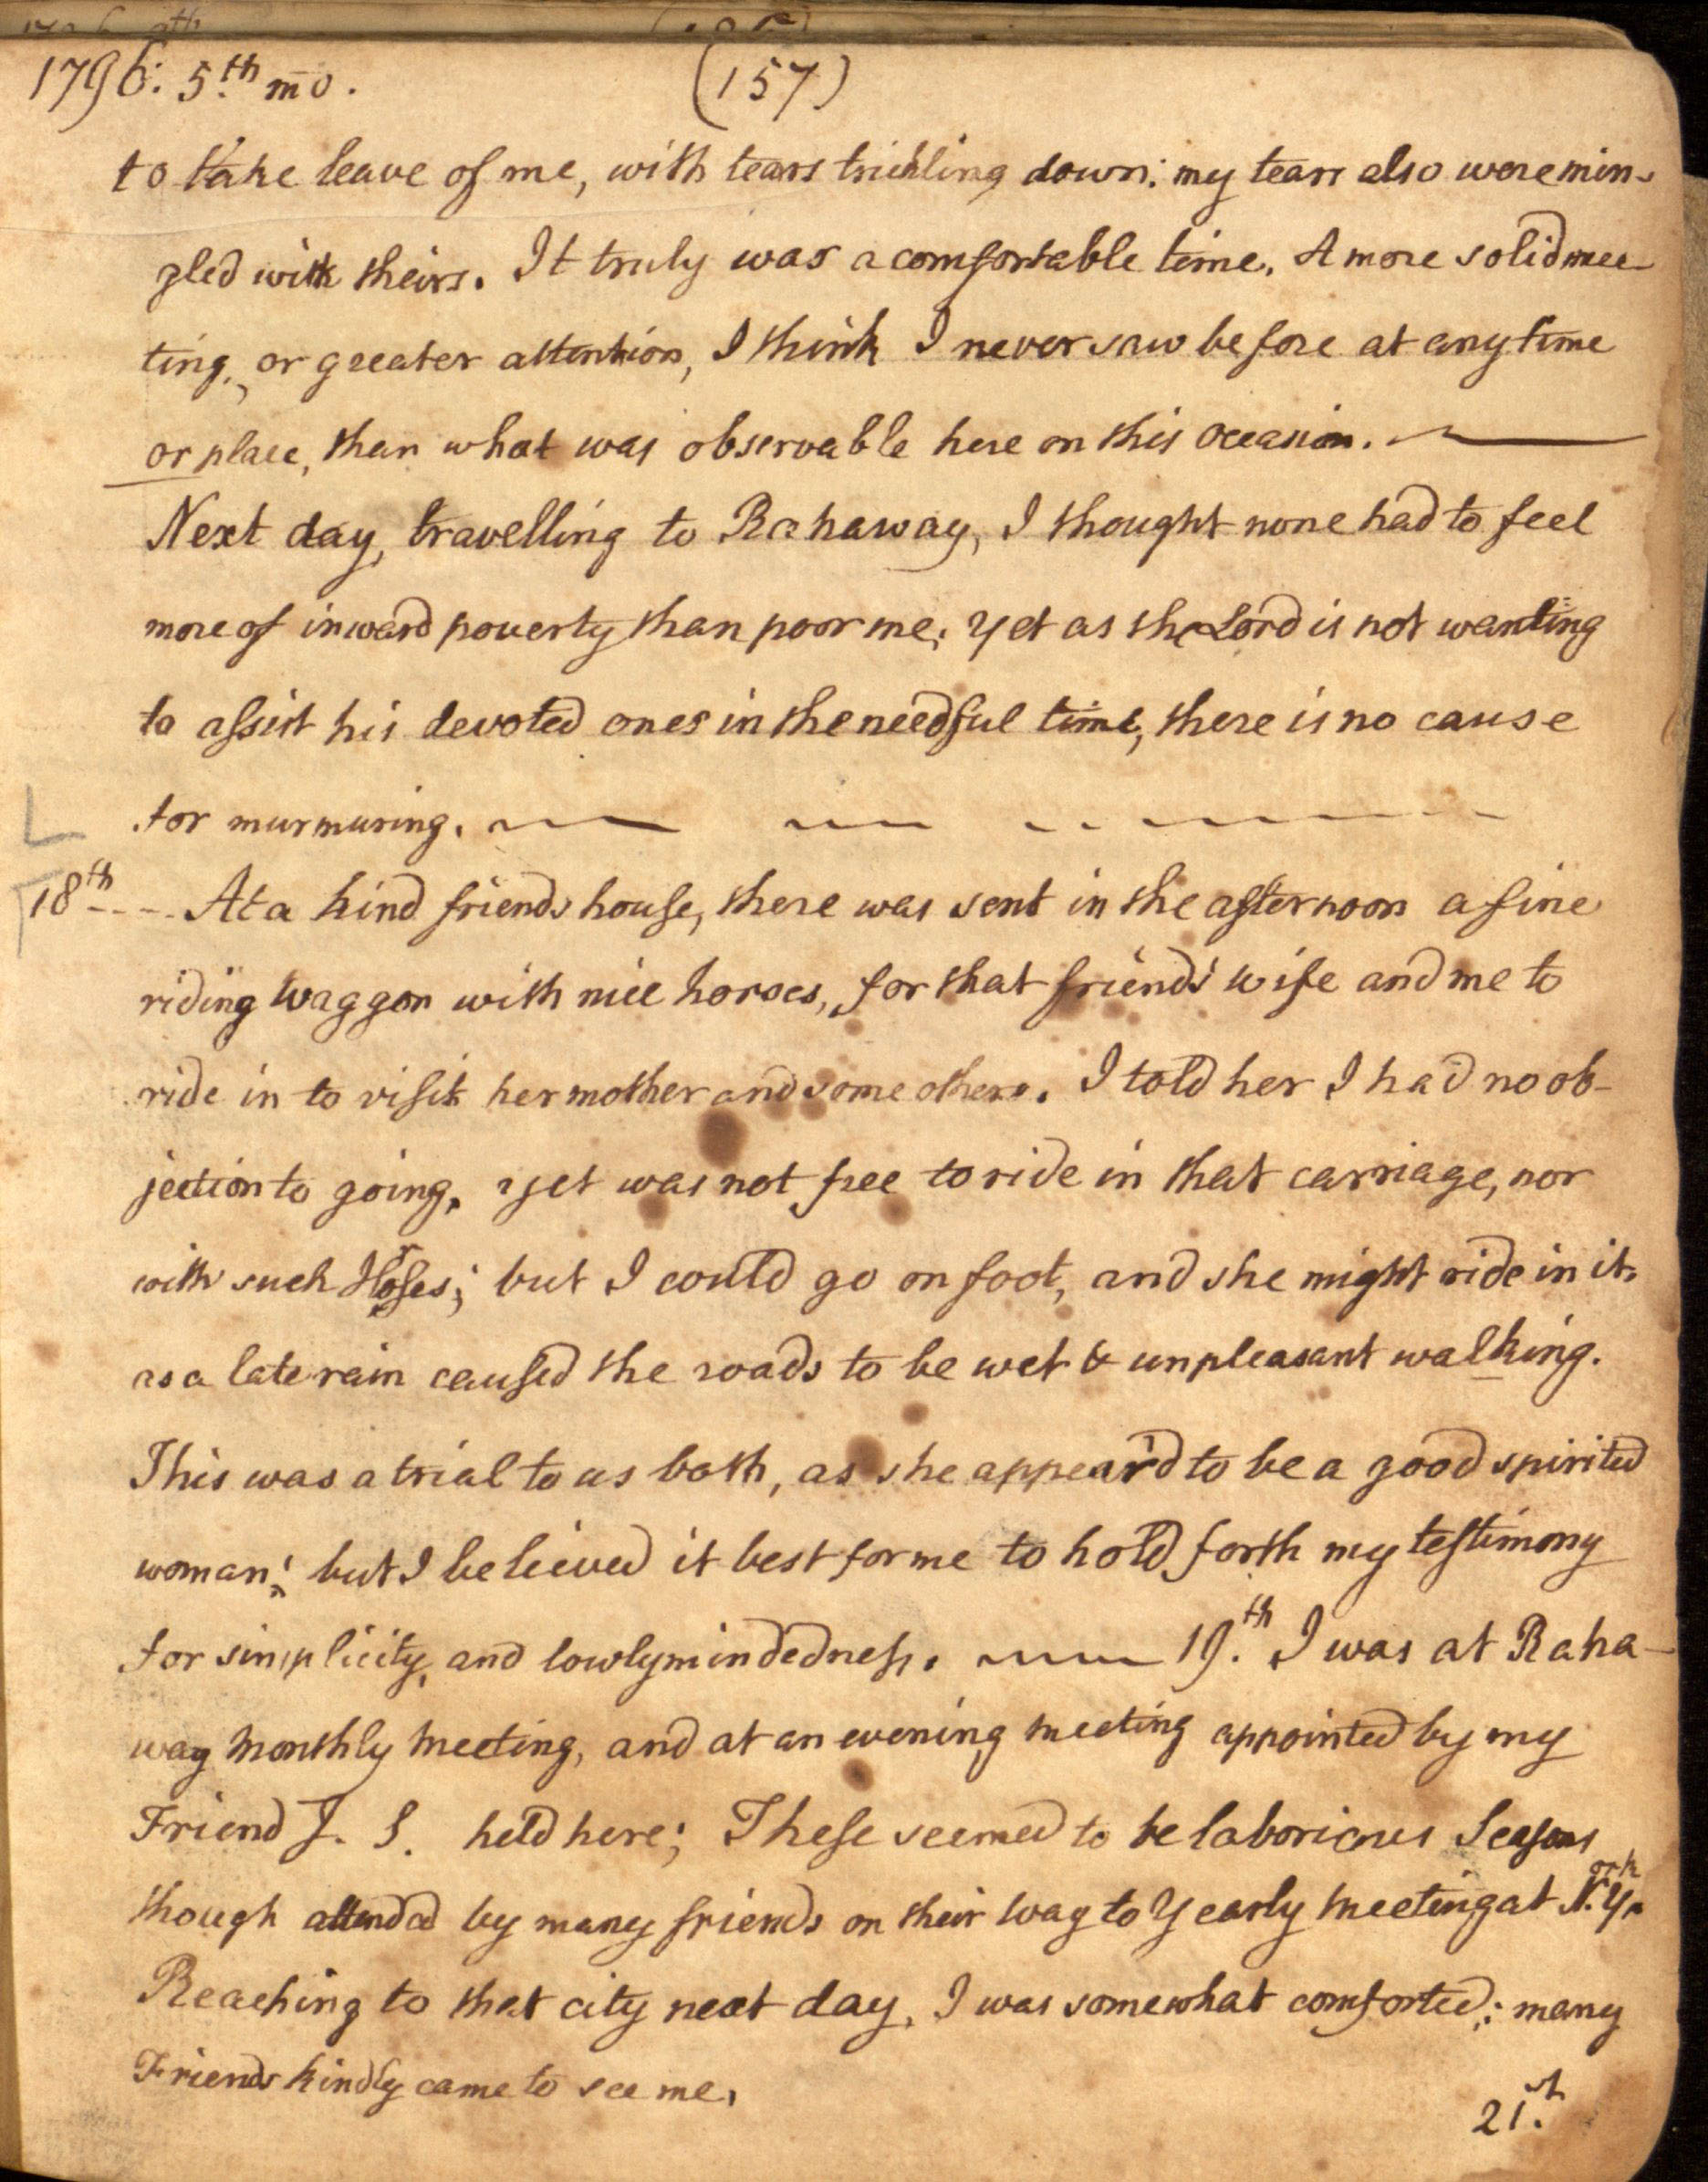 1796: 5.th mo.
(157)
to take leave of me, with tears trickling down: my tears also were min-
gled with theirs. It truly was a comfortable time. A more solid mee-
ting, or greater attention, I think I never saw before at any time
or place, than what was observable here on this occasion.
Next day, travelling to Rahaway, I thought none had to feel
more of inward poverty than poor me; yet as the Lord is not wanting
to assist his devoted ones in the needful time, there is no cause
for murmuring.
18th - - - At a kind friends house, there was sent in the afternoon a fine
riding waggon with nice horses, for that friends' wife and me to
ride in to visit her mother and some others. I told her I had no ob-
jection to going, yet was not free to ride in that carriage, nor
with such Horses; but I could go on foot, and she might ride in it,
as a late rain caused the roads to be wet & unpleasant walking.
This was a trial to us both, as she appear'd to be a good spirited
woman; but I believed it best for me to hold forth my testimony
for simplicity, and lowlymindedness. 19.th I was at Raha-
way Monthly Meeting, and at an evening meeting appointed by my
Friend J. S. held here; These seemed to be laborious Seasons
though attended by many friends on their way to Yearly Meeting at N. York
Reaching to that city next day, I was somewhat comforted: many
Friends kindly came to see me,
21.st